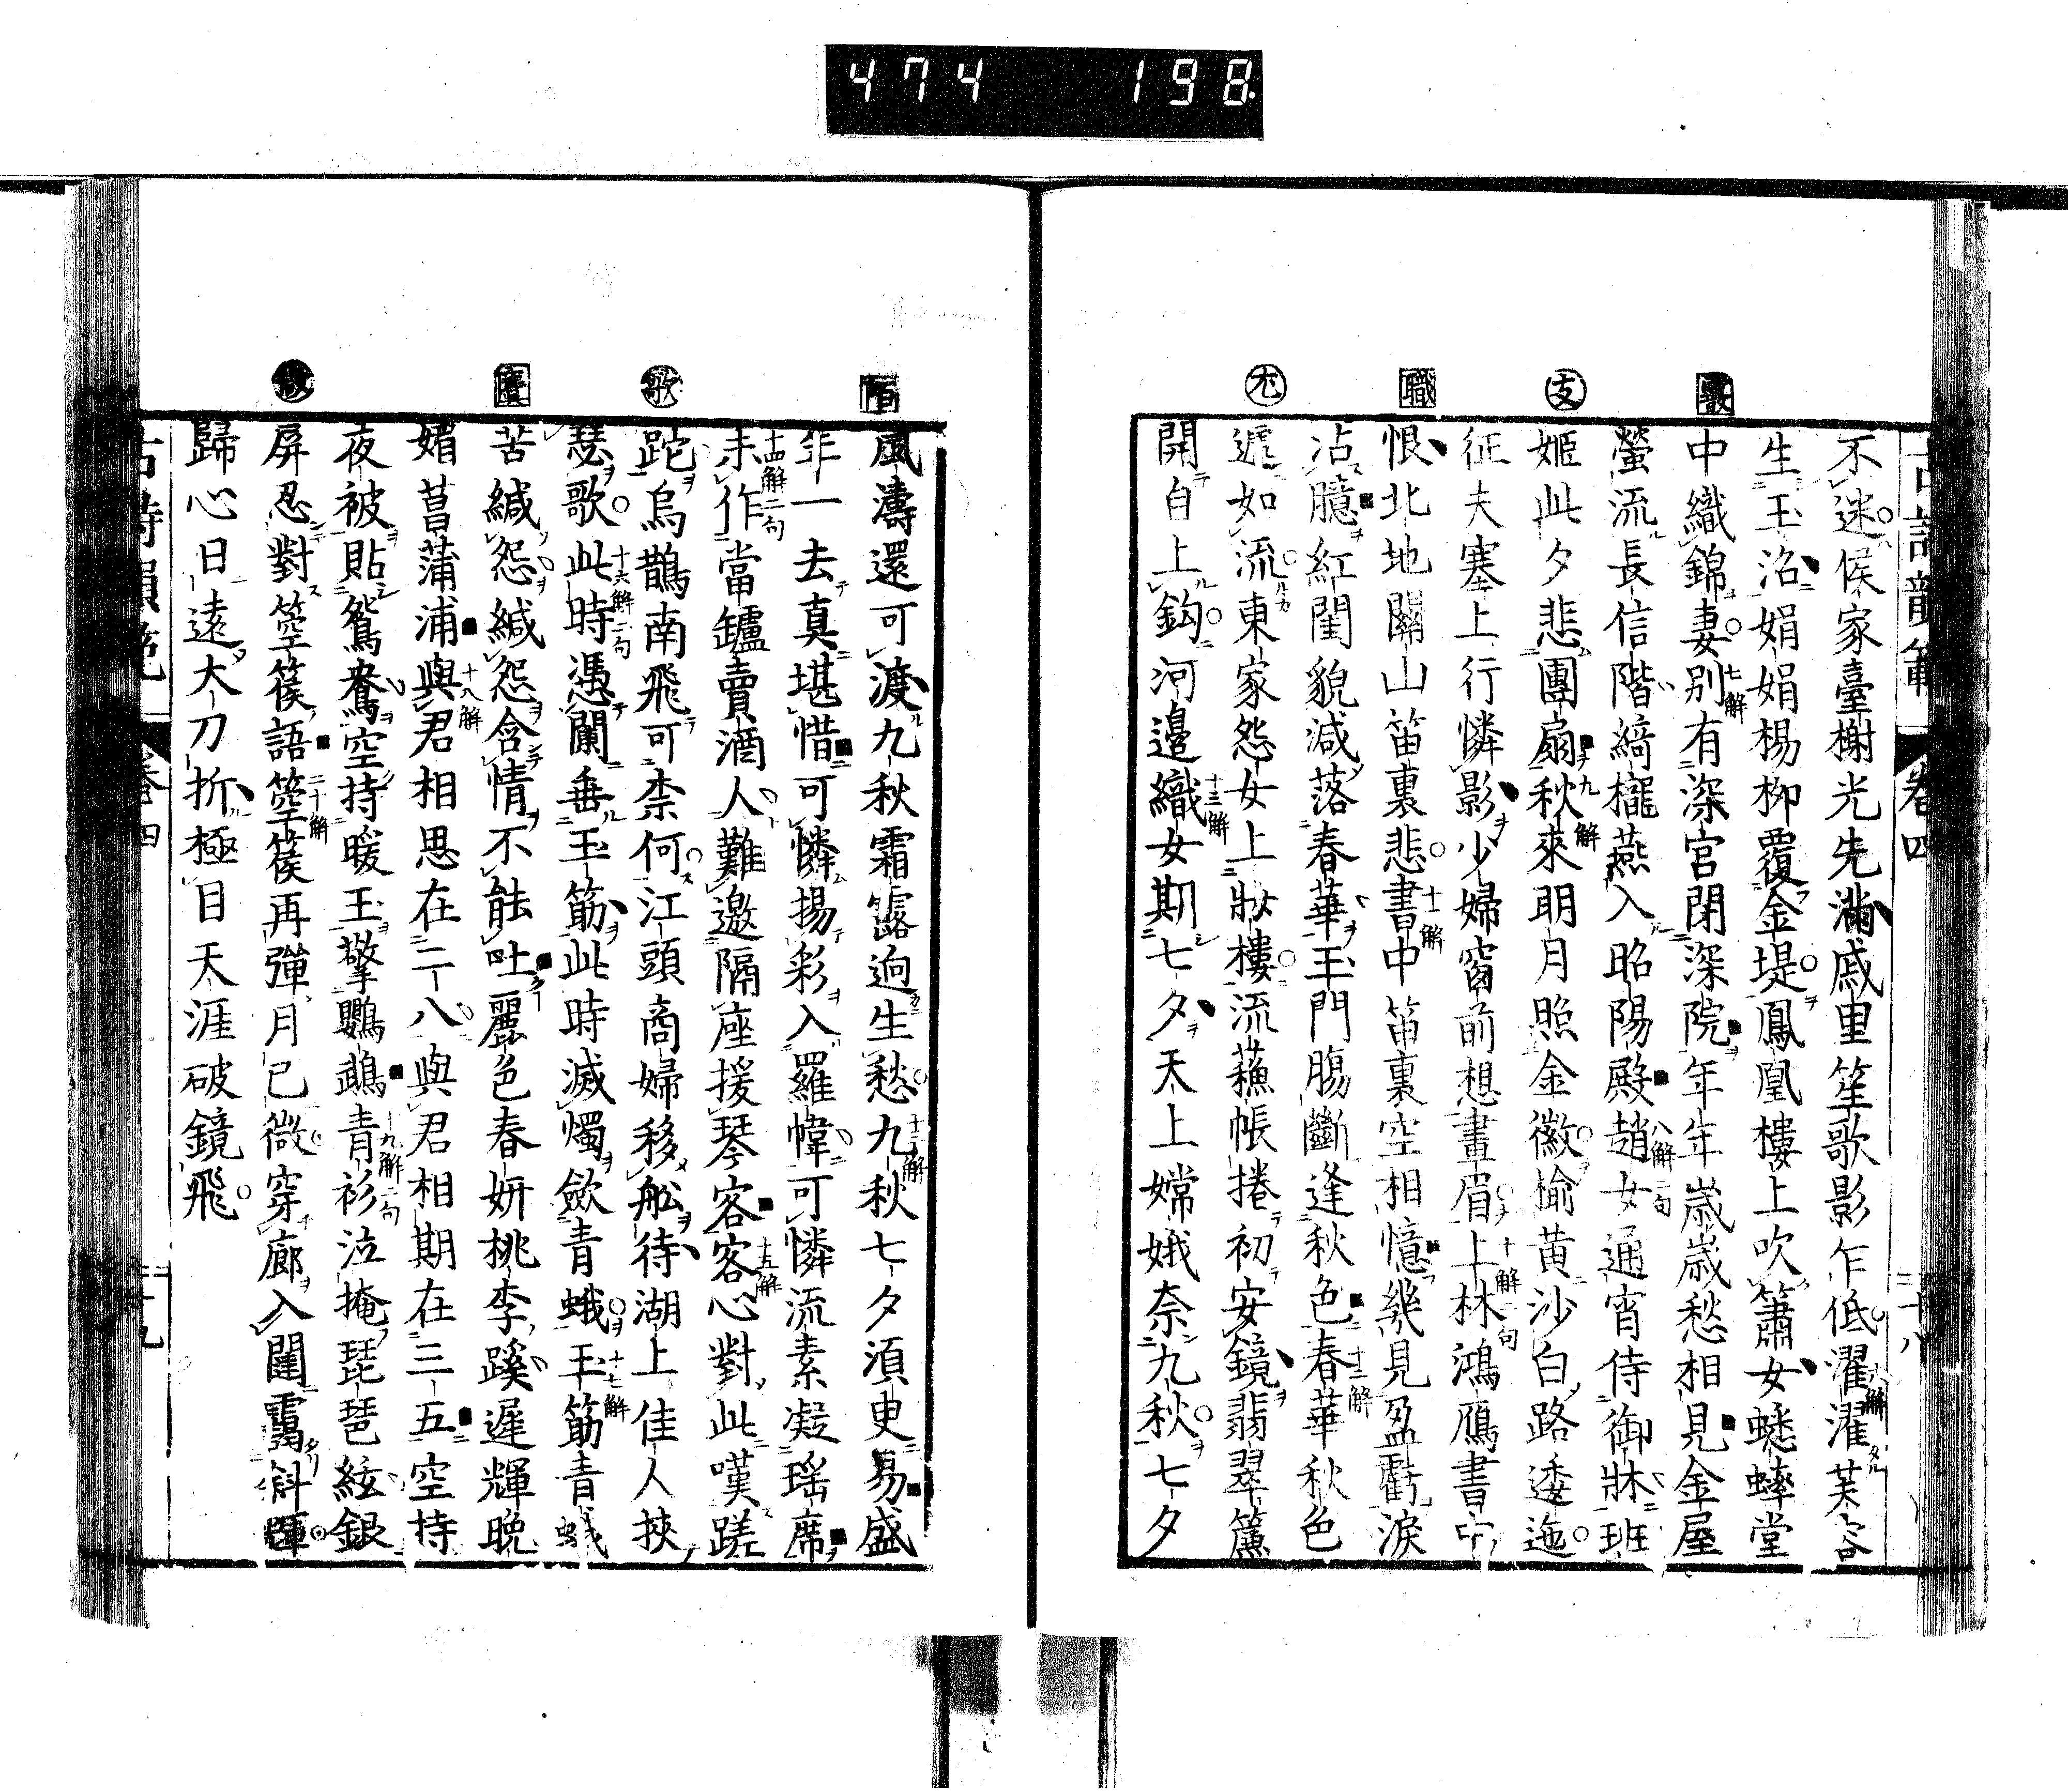 474 198
古詩韻範 卷四 二十八
不迷侯家臺榭光先滿戚里笙歌影乍低六解濯濯芙蓉
生玉沼娟娟楊柳覆金堤鳳凰樓上吹簫女蟋蟀堂
中織錦妻七解別有深宮閉深院年年歲歲愁相見金屋
螢流長信階綺櫳燕入昭陽殿八解二句趙女通宵侍御牀班
姬此夕悲團扇九解秋來明月照金徽榆黃沙白路逶迤
征夫塞上行憐影少婦窗前想畫眉十解二句上林鴻鴈書中
恨北地關山笛裏悲十一解書中笛裏空相憶幾見盈虧淚
沾臆紅閨貌減落春華玉門腸斷逢秋色十二解春華秋色
遞如流東家怨女上妝樓流蘇帳捲初安鏡翡翠簾
開自上鈎十三解河邊織女期七夕天上嫦娥奈九秋七夕
支
職
尤
風濤還可渡九秋霜露迥生愁十三解九秋七夕須臾易盛
年一去真堪惜可憐揚彩入羅幃可憐流素凝瑤席
十四解二句未作當鑪賣酒人難邀隔座援琴客十五解客心對此嘆蹉
跎烏鵲南飛可柰何江頭商婦移船待湖上佳人挾
瑟歌十六解二句此時憑闌垂玉筯此時滅燭斂青蛾十七解玉筯青蛾
苦緘怨緘怨含情不能吐麗色春妍桃李蹊遲輝晚
媚菖蒲浦十八解與君相思在二八與君相期在三五空持
夜被貼鴛鴦空持暖玉擎鸚鵡十九解二句青衫泣掩琵琶絃銀
屏忍對箜篌語二十解箜篌再彈月已微穿廊入闥靄斜輝
歸心日遠大刀折極目天涯破鏡飛
陌
歌
麌
古詩韻範 卷四 二十九